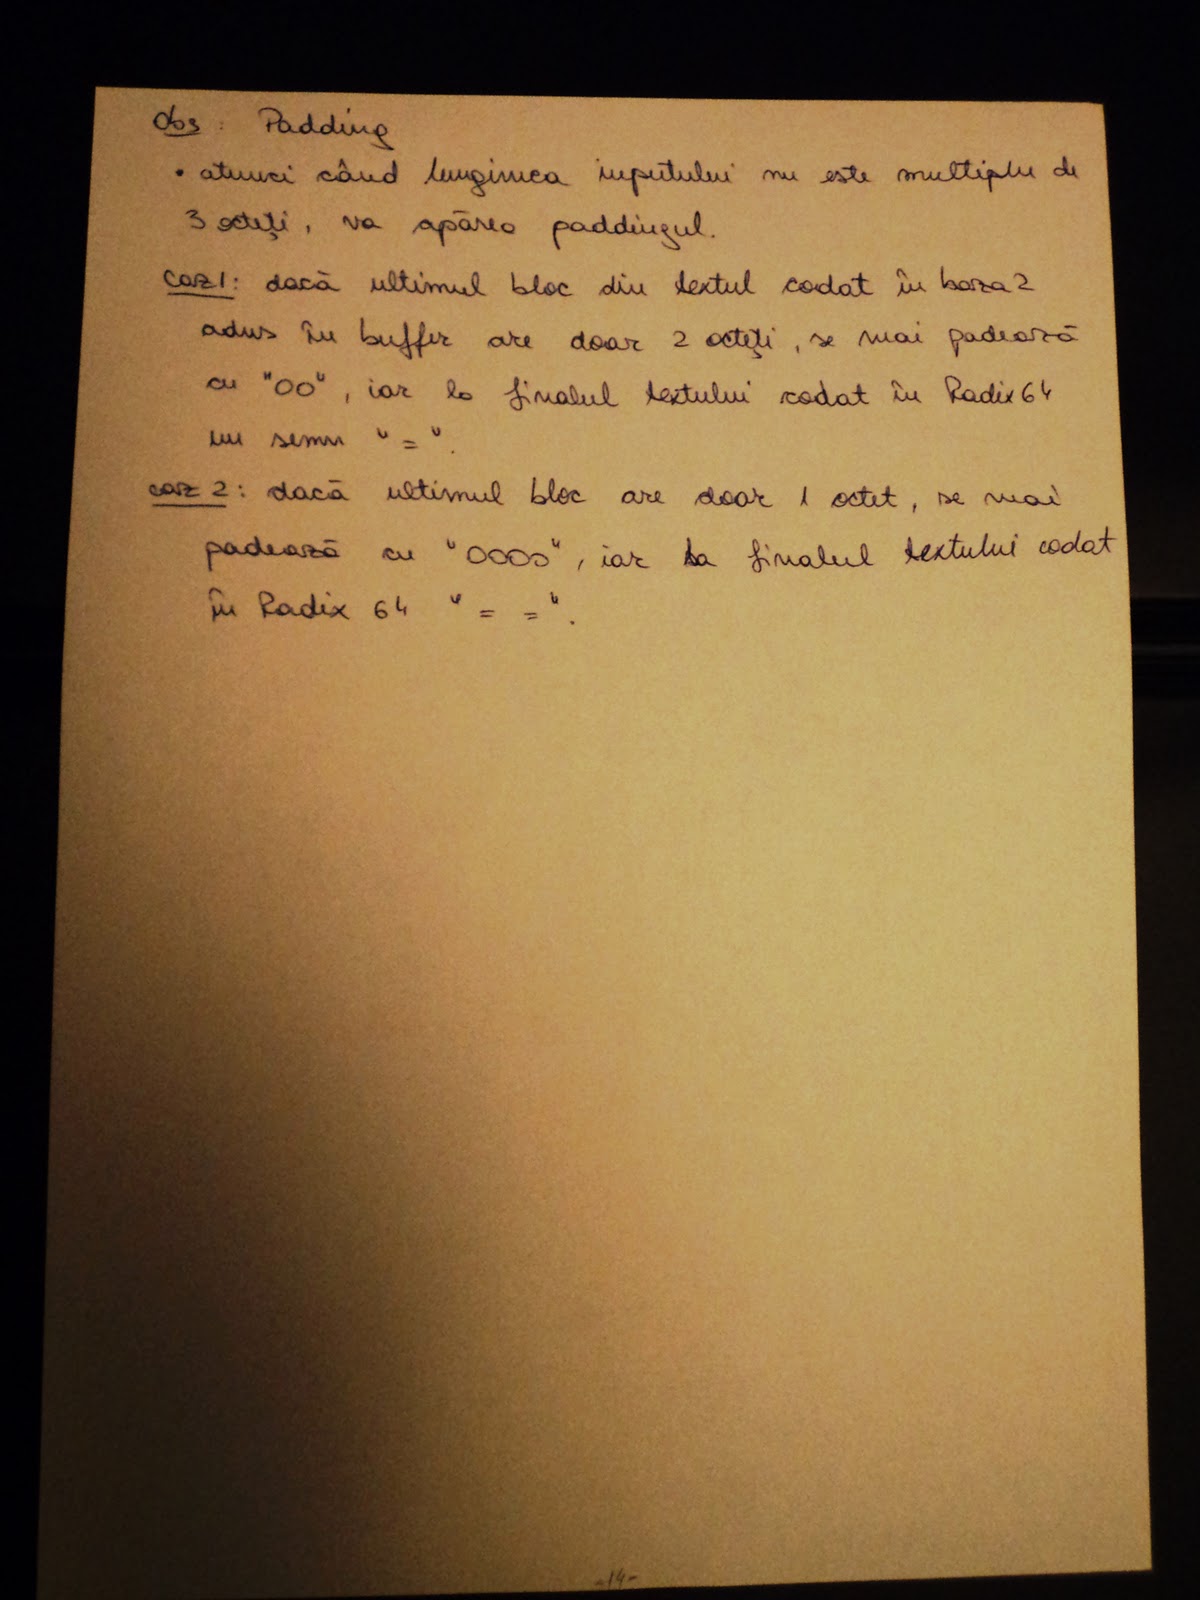 Obs : Padding
• atunci când lungimea inputului nu este multiplu de
3 octeți, va apărea paddingul.
caz 1: dacă ultimul bloc din textul codat în baza 2
adus în buffer are doar 2 octeți, se mai padează
cu "00", iar la finalul textului codat în Radix 64
un semn "=".
caz 2: dacă ultimul bloc are doar 1 octet, se mai
padează cu "0000", iar la finalul textului codat
în Radix 64 "= =".
-14-